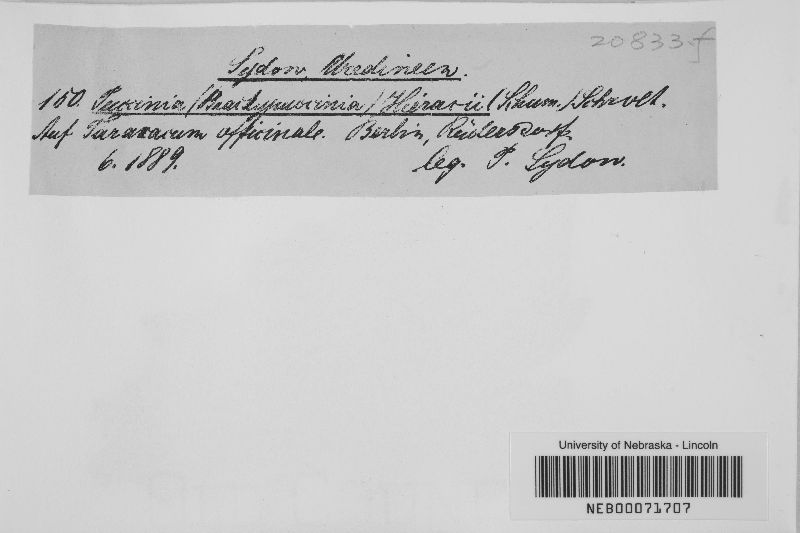 20833 f
Sydow, Uredineen.
150. Puccinia (Brachypuccinia) Hieracii (Schum.) Schroet.
Auf Taraxacum officinale. Berlin, Rüdersdorf.
6. 1889. leg. P. Sydow.
University of Nebraska - Lincoln
NEB00071707